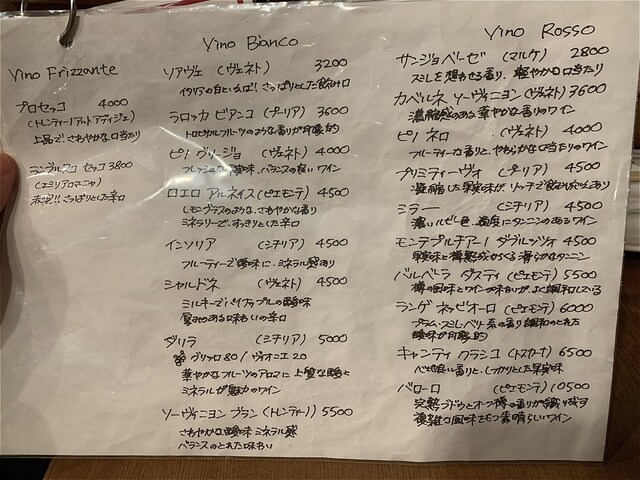 Vino Frizzante
プロセッコ 4000
(トレンティーノアルト アディジェ)
上品で!さわやかな口当たり
ランブルスコ セッコ 3800
(エミリアロマニャ)
赤泡!!さっぱりとした辛口
Vino Bianco
ソアヴェ (ヴェネト) 3200
イタリアの白といえば!さっぱりとした飲み口
ラロッカ ビアンコ (プーリア) 3600
トロピカルフルーツのような香りが印象的
ピノ グリージョ (ヴェネト) 4000
フレッシュな酸味、バランスの良いワイン
ロエロ アルネイス (ピエモンテ) 4500
レモングラスのような、さわやかな香り
ミネラリーで、すっきりとした辛口
インソリア (シチリア) 4500
フルーティーで酸味に、ミネラル感あり
シャルドネ (ヴェネト) 4500
ミルキーでパイナップルの酸味
厚みのある味わいの辛口
ダリラ (シチリア) 5000
グリッロ80/ヴィオニエ20
華やかなフルーツのアロマに上質な酸と
ミネラルが魅力のワイン
ソーヴィニヨン ブラン (トレンティーノ) 5500
さわやかな酸味 ミネラル感
バランスのとれた味わい
Vino Rosso
サンジョベーゼ (マルケ) 2800
スミレを想わせる香り、軽やかな口当たり
カベルネ ソーヴィニヨン (ヴェネト) 3600
濃縮感のある華やかな香りのワイン
ピノ ネロ (ヴェネト) 4000
フルーティーな香りと、やわらかな口当たりのワイン
プリミティーヴォ (プーリア) 4500
凝縮した果実味が、リッチで飲みごたえあり
ミラー (シチリア) 4500
濃いルビー色、適度にタンニンのあるワイン
モンテプルチアーノ ダブルッツォ 4500
果実味と樽熟成からくる滑らかなタンニン
バルベラ ダスティ (ピエモンテ) 5500
樽の風味とワインの味わいが、よく調和している
ランゲ ネッビオーロ (ピエモンテ) 6000
プラム・スミレ・ベリー系の香り 調和のとれた
酸味が印象的
キャンティ クラシコ (トスカーナ) 6500
ベリの良い香りと、しっかりとした果実味
バローロ (ピエモンテ) 10500
完熟ブドウとオーク樽の香りが織り成す
複雑な風味をもつ素晴らしいワイン